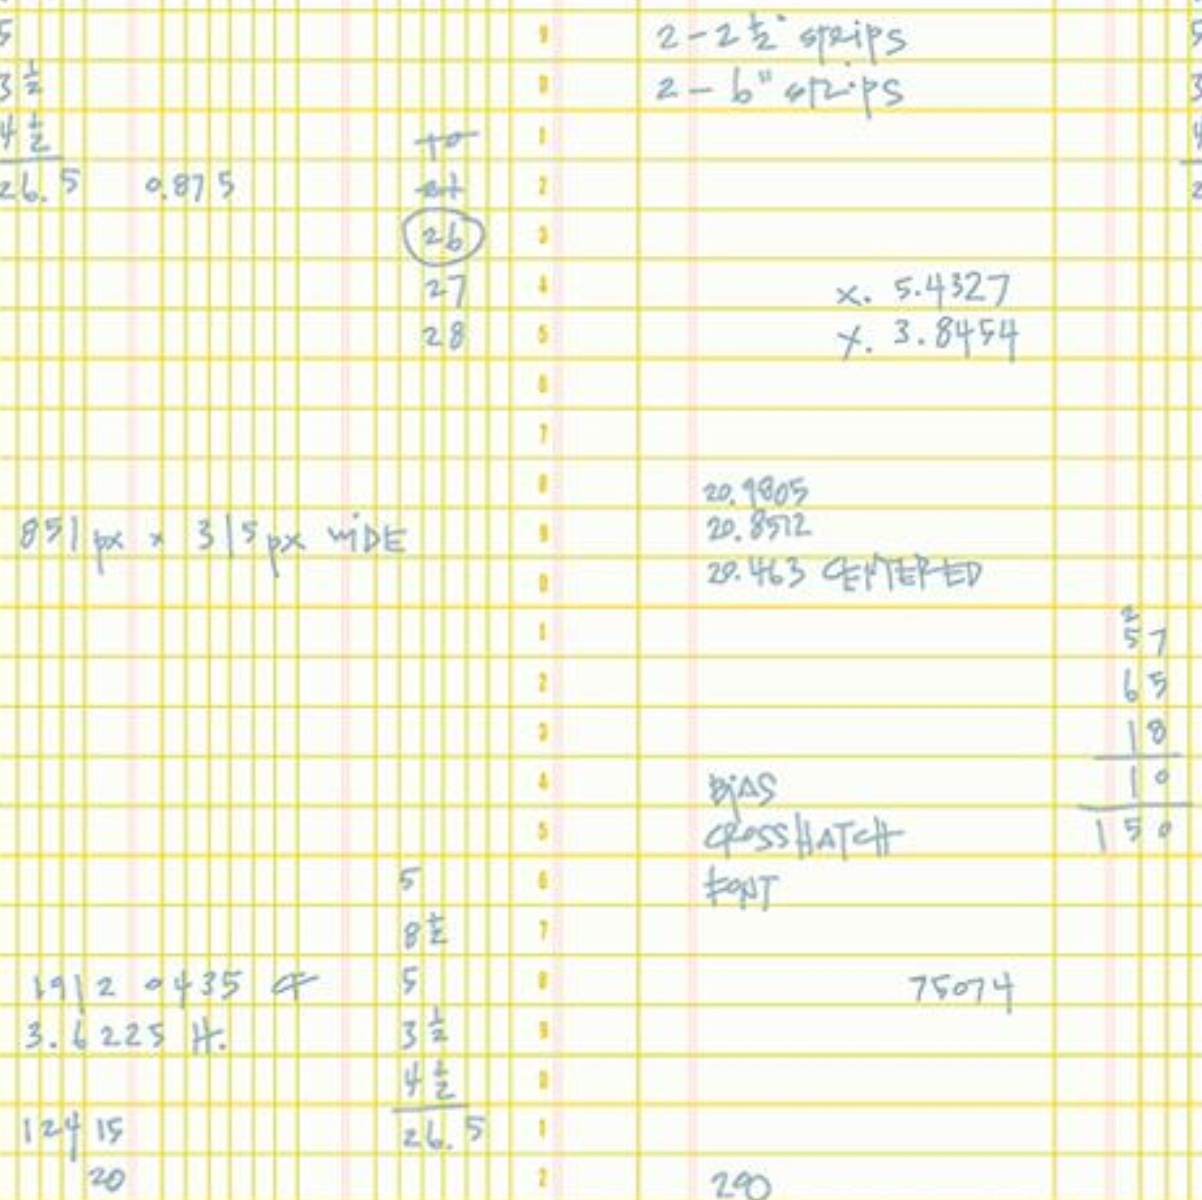 5
3 1/2
4 1/2
26.5 0.875
26
27
28
851 px x 315 px WIDE
5
8 1/2
5
3 1/2
4 1/2
26.5
1912 0435 CF
3.6225 H.
124 15
20
2 - 2 1/2" strips
2 - 6" strips
x. 5.4327
y. 3.8454
20.9805
20.8512
20.463 CENTERED
BIAS
CROSSHATCH
FONT
75074
290
2
57
65
18
10
150
9
0
1
2
3
4
5
6
7
8
9
0
1
2
3
4
5
6
7
8
9
0
1
2
5
3
4
2